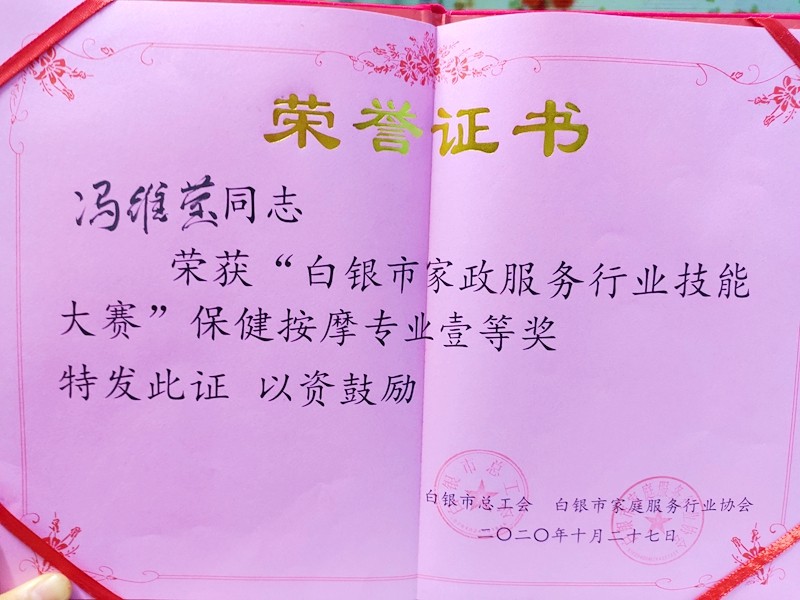 荣誉证书
冯维莹同志
荣获“白银市家政服务行业技能
大赛”保健按摩专业壹等奖
特发此证 以资鼓励
白银市总工会 白银市家庭服务行业协会
二〇二〇年十月二十七日